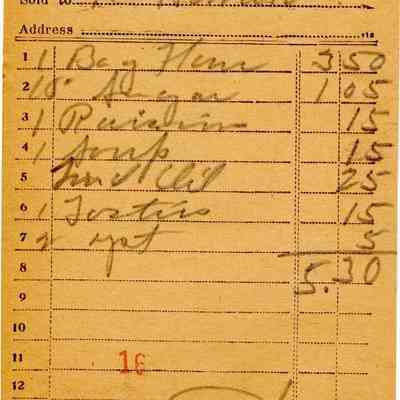 Sold to
Address
1 1 Bag Flour 3 50
2 10 Sugar 1 05
3 1 Raisin 15
4 1 Soup 15
5 25
6 1 Tosties 15
7 2 yst 5
8 5.30
9
10
11 16
12